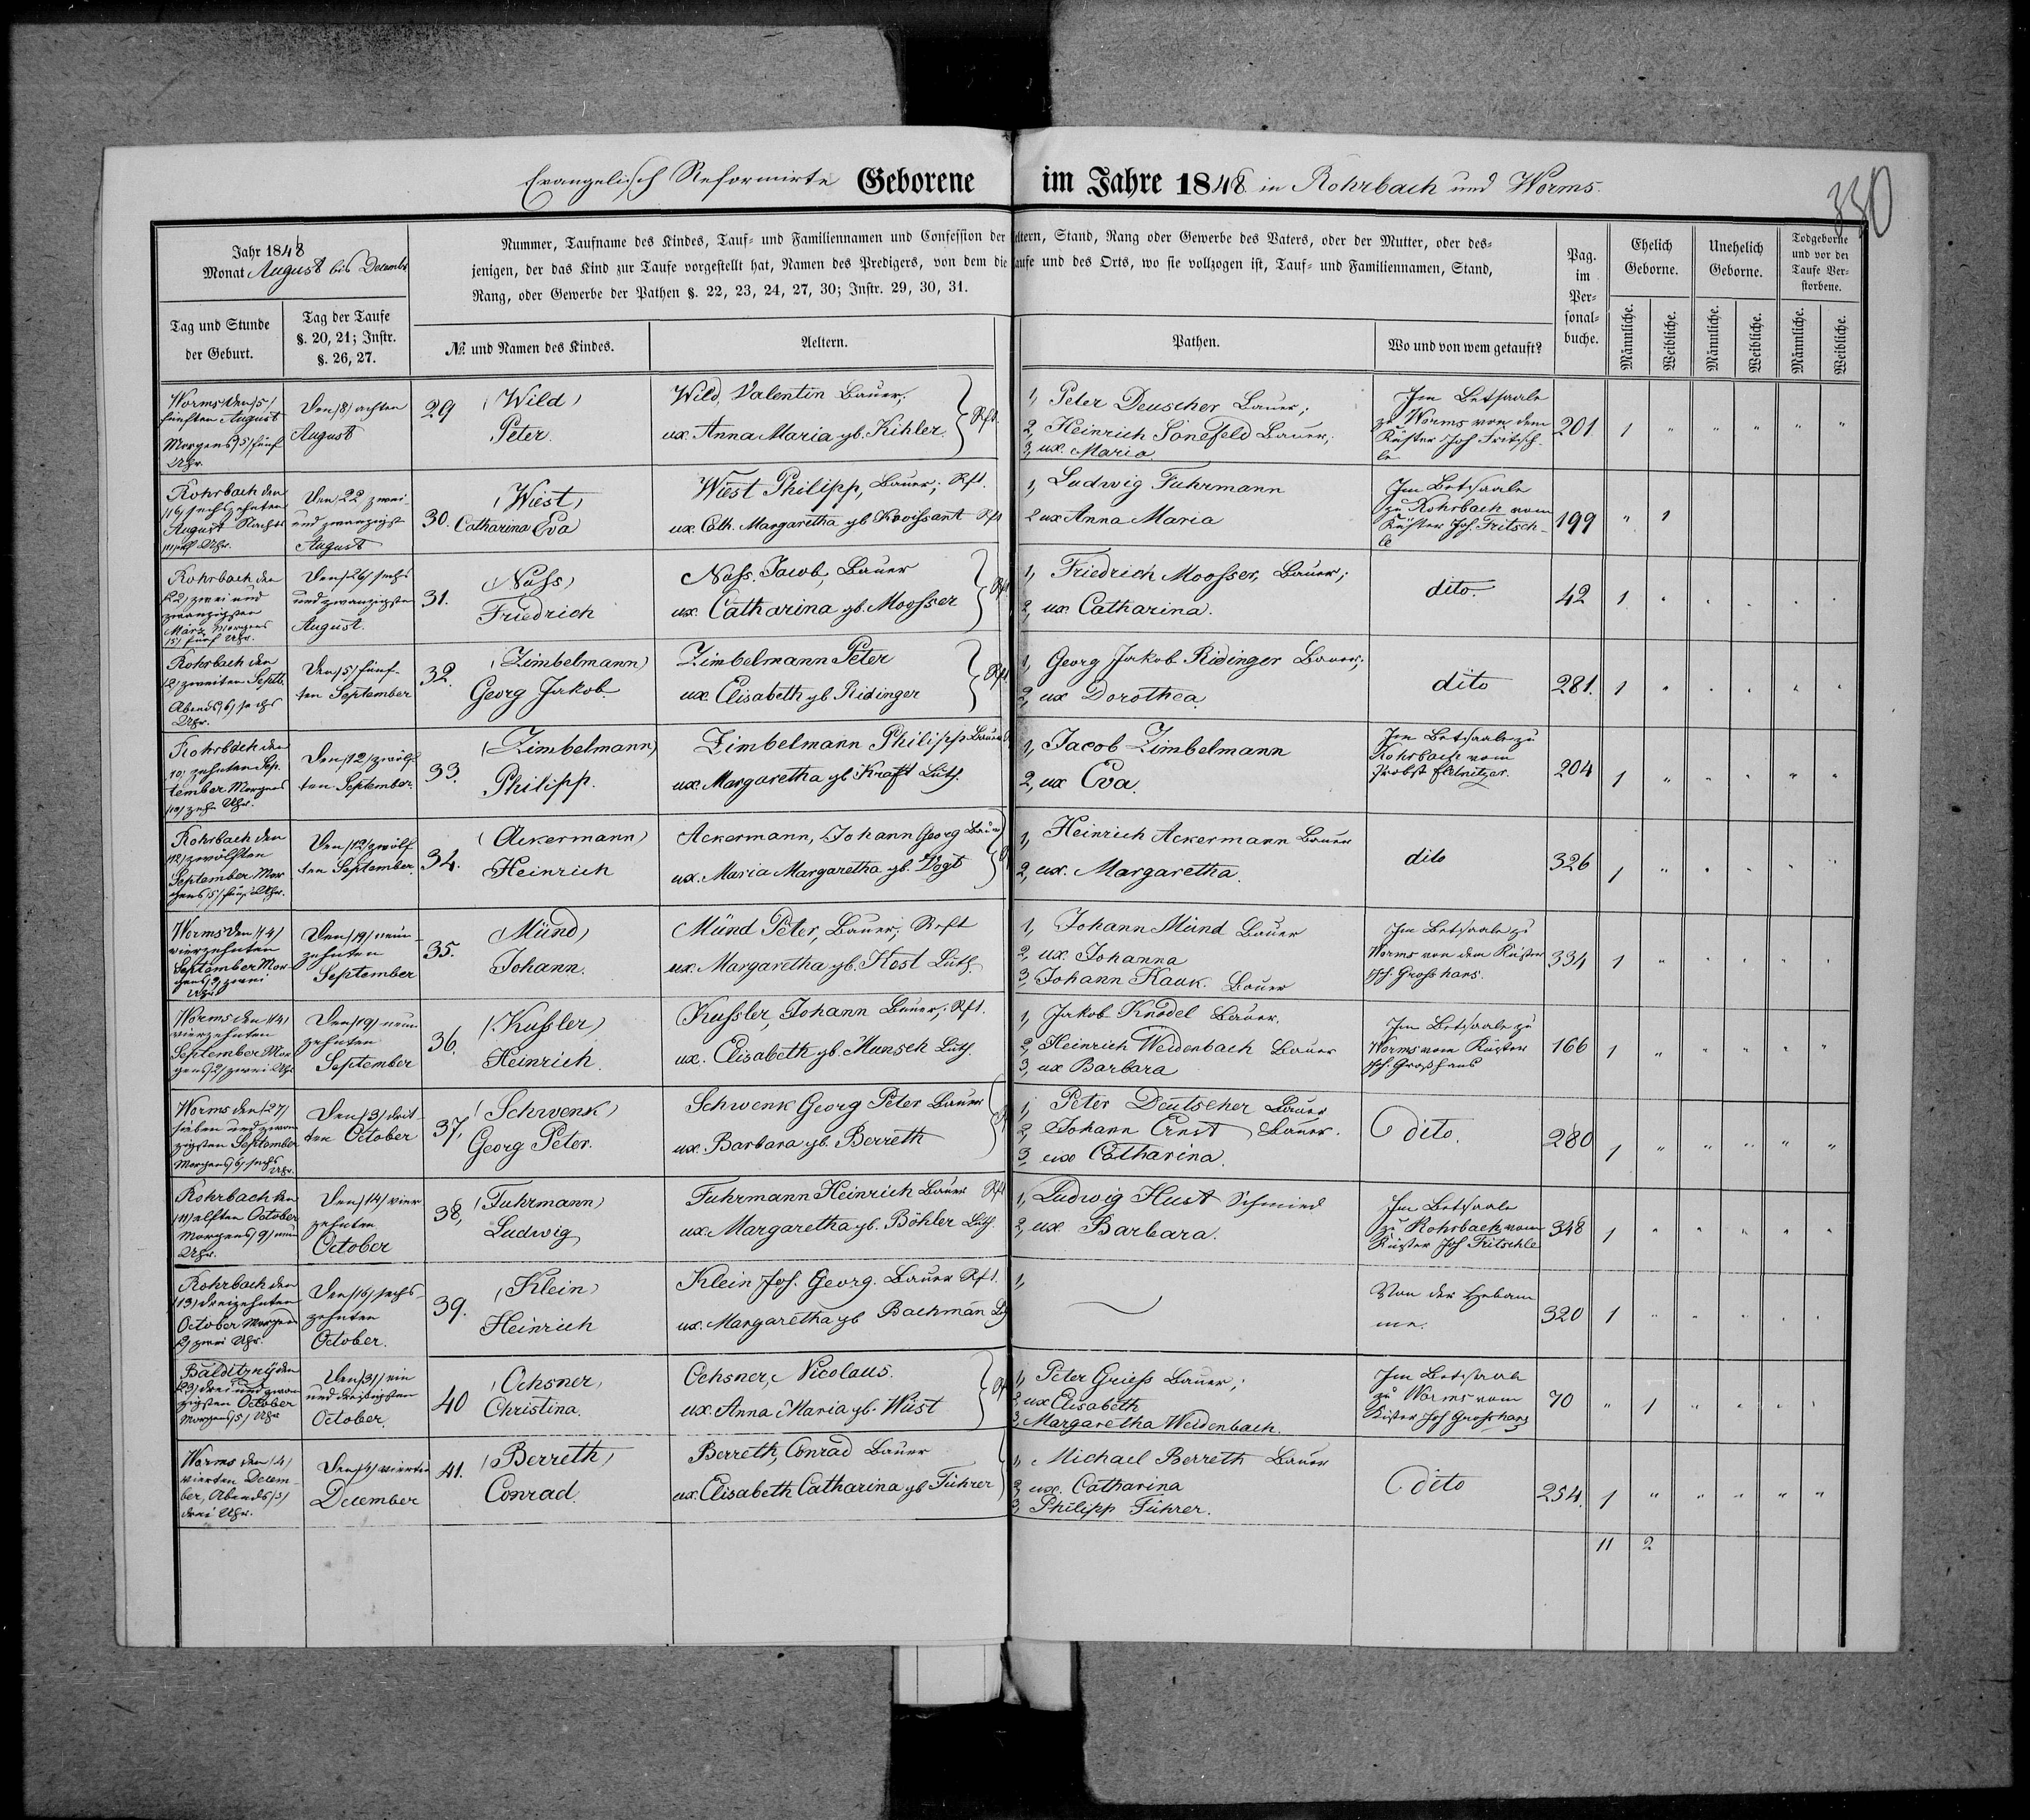 Evangelisch Reformirte Geborene im Jahre 1848 in Rohrbach und Worms.
330
Jahr 1848
Monat August bis Decembr
Nummer, Taufname des Kindes, Tauf- und Familiennamen und Confession der Aeltern, Stand, Rang oder Gewerbe des Vaters, oder der Mutter, oder des-
jenigen, der das Kind zur Taufe vorgestellt hat, Namen des Predigers, von dem die Taufe und des Orts, wo sie vollzogen ist, Tauf- und Familiennamen, Stand,
Rang, oder Gewerbe der Pathen §. 22, 23, 24, 27, 30; Instr. 29, 30, 31.
Pag.
im
Per-
sonal-
buche.
Ehelich
Geborne.
Unehelich
Geborne.
Todgeborne
und vor der
Taufe Ver-
storbene.
Tag und Stunde
der Geburt.
Tag der Taufe
§. 20, 21; Instr.
§. 26, 27.
№ und Namen des Kindes.
Aeltern.
Pathen.
Wo und von wem getauft?
Männliche.
Weibliche.
Männliche.
Weibliche.
Männliche.
Weibliche.
Worms den /5/
fünften August
Morgens /5/ fünf
Uhr.
Den /8/ achten
August
29
(Wild)
Peter.
Wild, Valentin Bauer.
ux. Anna Maria gb. Kihler.
Rft.
1, Peter Deuscher Bauer;
2, Heinrich Sonefeld Bauer;
3, ux. Maria.
Im Betsaale
zu Worms von dem
Küster Joh Fritsch-
le
201. 1 " " " " "
Rohrbach den
/16/ sechszehnten
August Nachts
/11/ elf Uhr.
Den 22 zwei-
und zwanzigst
August
30.
(Wiest)
Catharina Eva
Wiest Philipp, Bauer; Rft.
ux. Cath. Margaretha gb Kroissant Rft
1, Ludwig Fuhrmann
2 ux Anna Maria
Im Betsaale
zu Rohrbach vom
Küster Joh. Fritsch-
le
199 " 1
Rohrbach den
/22/ zwei und
zwanzigsten
März Morgens
/5/ fünf Uhr.
Den /26/ sechs
und zwanzigsten
August.
31.
(Nass)
Friedrich
Nass. Jacob, Bauer
ux. Catharina gb. Moosser
Rft
1, Friedrich Moosser, Bauer;
2, ux Catharina.
dito.
42 1 " " " " "
Rohrbach den
/2/ zweiten Septb.
Abends /6/ sechs
Uhr.
Den /5/ fünf-
ten September
32.
(Zimbelmann)
Georg Jakob.
Zimbelmann Peter
ux. Elisabeth gb Ridinger
Rft
1, Georg Jakob Ridinger Bauer;
2, ux Dorothea.
dito
281. 1 " " " " "
Rohrbach den
/10/ zehnten Sep-
tember Morgens
/10/ zehn Uhr.
Den /12/ zwölf
ten September.
33.
(Zimbelmann)
Philipp.
Zimbelmann Philipp Bauer
ux. Margaretha gb Kraft Luth.
1, Jacob Zimbelmann
2, ux Eva.
Im Betsaale zu
Rohrbach vom
Probst Fletnitzer.
204 1 " " " " "
Rohrbach den
/12/ zwölften
September Mor
gens /5/ fünf Uhr.
Den /12/ zwölf
ten September.
34.
(Ackermann)
Heinrich
Ackermann, Johann Georg Bauer
ux. Maria Margaretha gb. Vogt
1, Heinrich Ackermann Bauer
2, ux. Margaretha.
dito
326 1 " " " " "
Worms den /14/
vierzehnten
September Mor-
gens /2/ zwei
Uhr
Den /19/ neun-
zehnten
September
35.
(Münd)
Johann.
Münd Peter, Bauer; Rft
ux. Margaretha gb. Kost Luth.
1, Johann Münd Bauer
2, ux. Johanna
3, Johann Kauk. Bauer
Im Betsaale zu
Worms von dem Küster
Joh. Grosshans.
334 1 " " " " "
Worms den /14/
vierzehnten
September Mor
gens /2/ zwei Uhr
Den /19/ neun-
zehnten
September
36.
(Kussler)
Heinrich.
Kussler, Johann Bauer; Rft.
ux. Elisabeth gb. Munsch Luth.
1, Jakob Knödel Bauer.
2, Heinrich Weidenbach Bauer
3, ux Barbara
Im Betsaale zu
Worms vom Küster
Joh. Grosshans
166 1 " " " " "
Worms den /27/
sieben und zwan
zigsten September
Morgens /6/ sechs
Uhr.
Den /3/ drit-
ten October
37,
(Schwenk)
Georg Peter.
Schwenk Georg Peter Bauer
ux. Barbara gb. Berreth
1, Peter Deutscher Bauer
2, Johann Ernst Bauer.
3, ux Catharina.
dito.
280 1 " " " " "
Rohrbach den
/11/ elften October
Morgens /9/ neun
Uhr.
Den /14/ vier
zehnten
October
38,
(Fuhrmann)
Ludwig
Fuhrmann Heinrich Bauer Rft
ux. Margaretha gb. Böhler Luth.
1, Ludwig Hust Schmied
2, ux. Barbara.
Im Betsaale
zu Rohrbach vom
Küster Joh Fritschle
348 1 " " " " "
Rohrbach den
/13/ dreizehnten
October Morgens
/2/ zwei Uhr.
Den /16/ sechs-
zehnten
October.
39.
(Klein)
Heinrich
Klein Joh. Georg. Bauer Rft.
ux. Margaretha gb Bachman
1,
Von der Hebam
me.
320 1 " " " " "
Balditzny den
/23/ drei und zwan
zigsten October
Morgens /5/ Uhr
Den /31/ ein
und dreißigsten
October.
40
(Ochsner)
Christina.
Ochsner, Nicolaus.
ux. Anna Maria gb. Wüst
1, Peter Griess Bauer;
2 ux Elisabeth
3, Margaretha Weidenbach.
Im Betsaale
zu Worms vom
Küster Joh Grosshans
70 " 1 " " " "
Worms den /4/
vierten Decem-
ber, Abends /3/
drei Uhr.
Den /4/ vierten
December
41.
(Berreth)
Conrad.
Berreth, Conrad Bauer
ux. Elisabeth Catharina gb Führer
1, Michael Berreth Bauer
2, ux. Catharina
3, Philipp Führer.
dito
254. 1 " " " " "
11 2